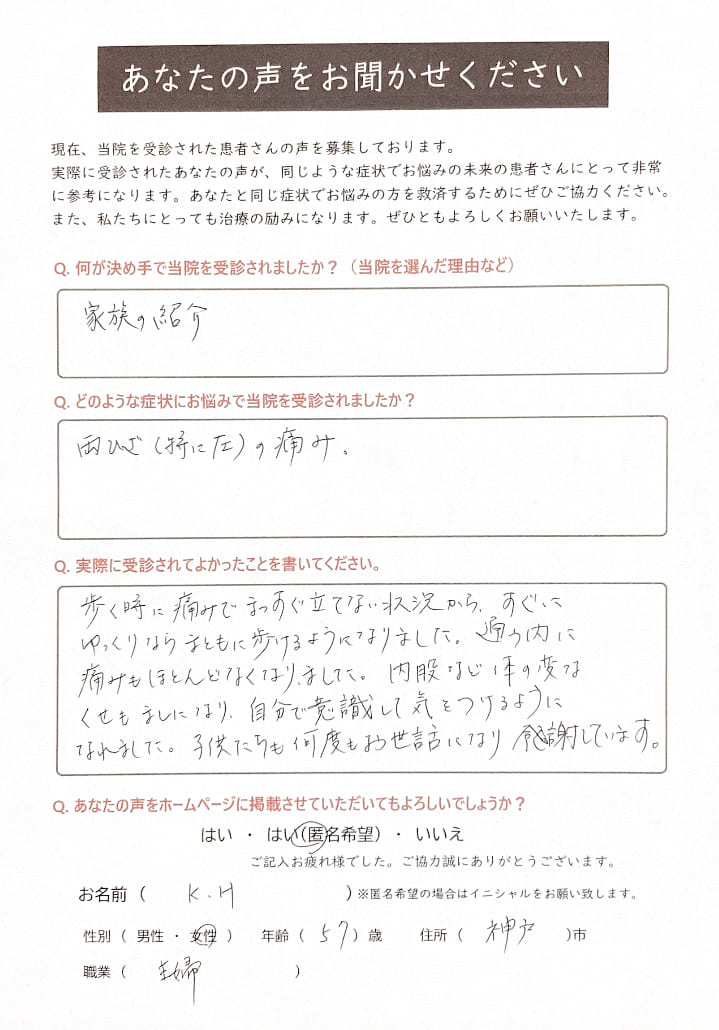 あなたの声をお聞かせください
現在、当院を受診された患者さんの声を募集しております。
実際に受診されたあなたの声が、同じような症状でお悩みの未来の患者さんにとって非常
に参考になります。あなたと同じ症状でお悩みの方を救済するためにぜひご協力ください。
また、私たちにとっても治療の励みになります。ぜひともよろしくお願いいたします。
Q. 何が決め手で当院を受診されましたか？（当院を選んだ理由など）
家族の紹介
Q. どのような症状にお悩みで当院を受診されましたか？
両ひざ（特に左）の痛み。
Q. 実際に受診されてよかったことを書いてください。
歩く時に痛みでまっすぐ立てない状況から、すぐに
ゆっくりならまともに歩けるようになりました。通う内に
痛みもほとんどなくなりました。内股など体の変な
くせもましになり、自分で意識して気をつけるように
なれました。子供たちも何度もお世話になり感謝しています。
Q. あなたの声をホームページに掲載させていただいてもよろしいでしょうか？
はい ・ はい（匿名希望）・ いいえ
ご記入お疲れ様でした。ご協力誠にありがとうございます。
お名前（ K.H ）※匿名希望の場合はイニシャルをお願い致します。
性別（ 男性 ・ 女性 ） 年齢（ 57 ）歳 住所（ 神戸 ）市
職業（ 主婦 ）